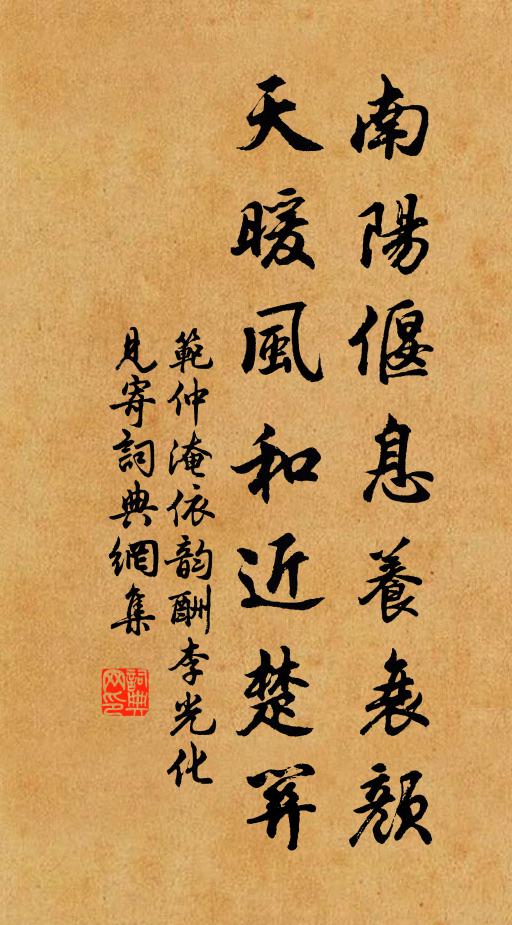 南陽偃息養衰顏
天暖風和近楚關
範仲淹依韵酬李光化
見寄詞典網集
詞典
网印